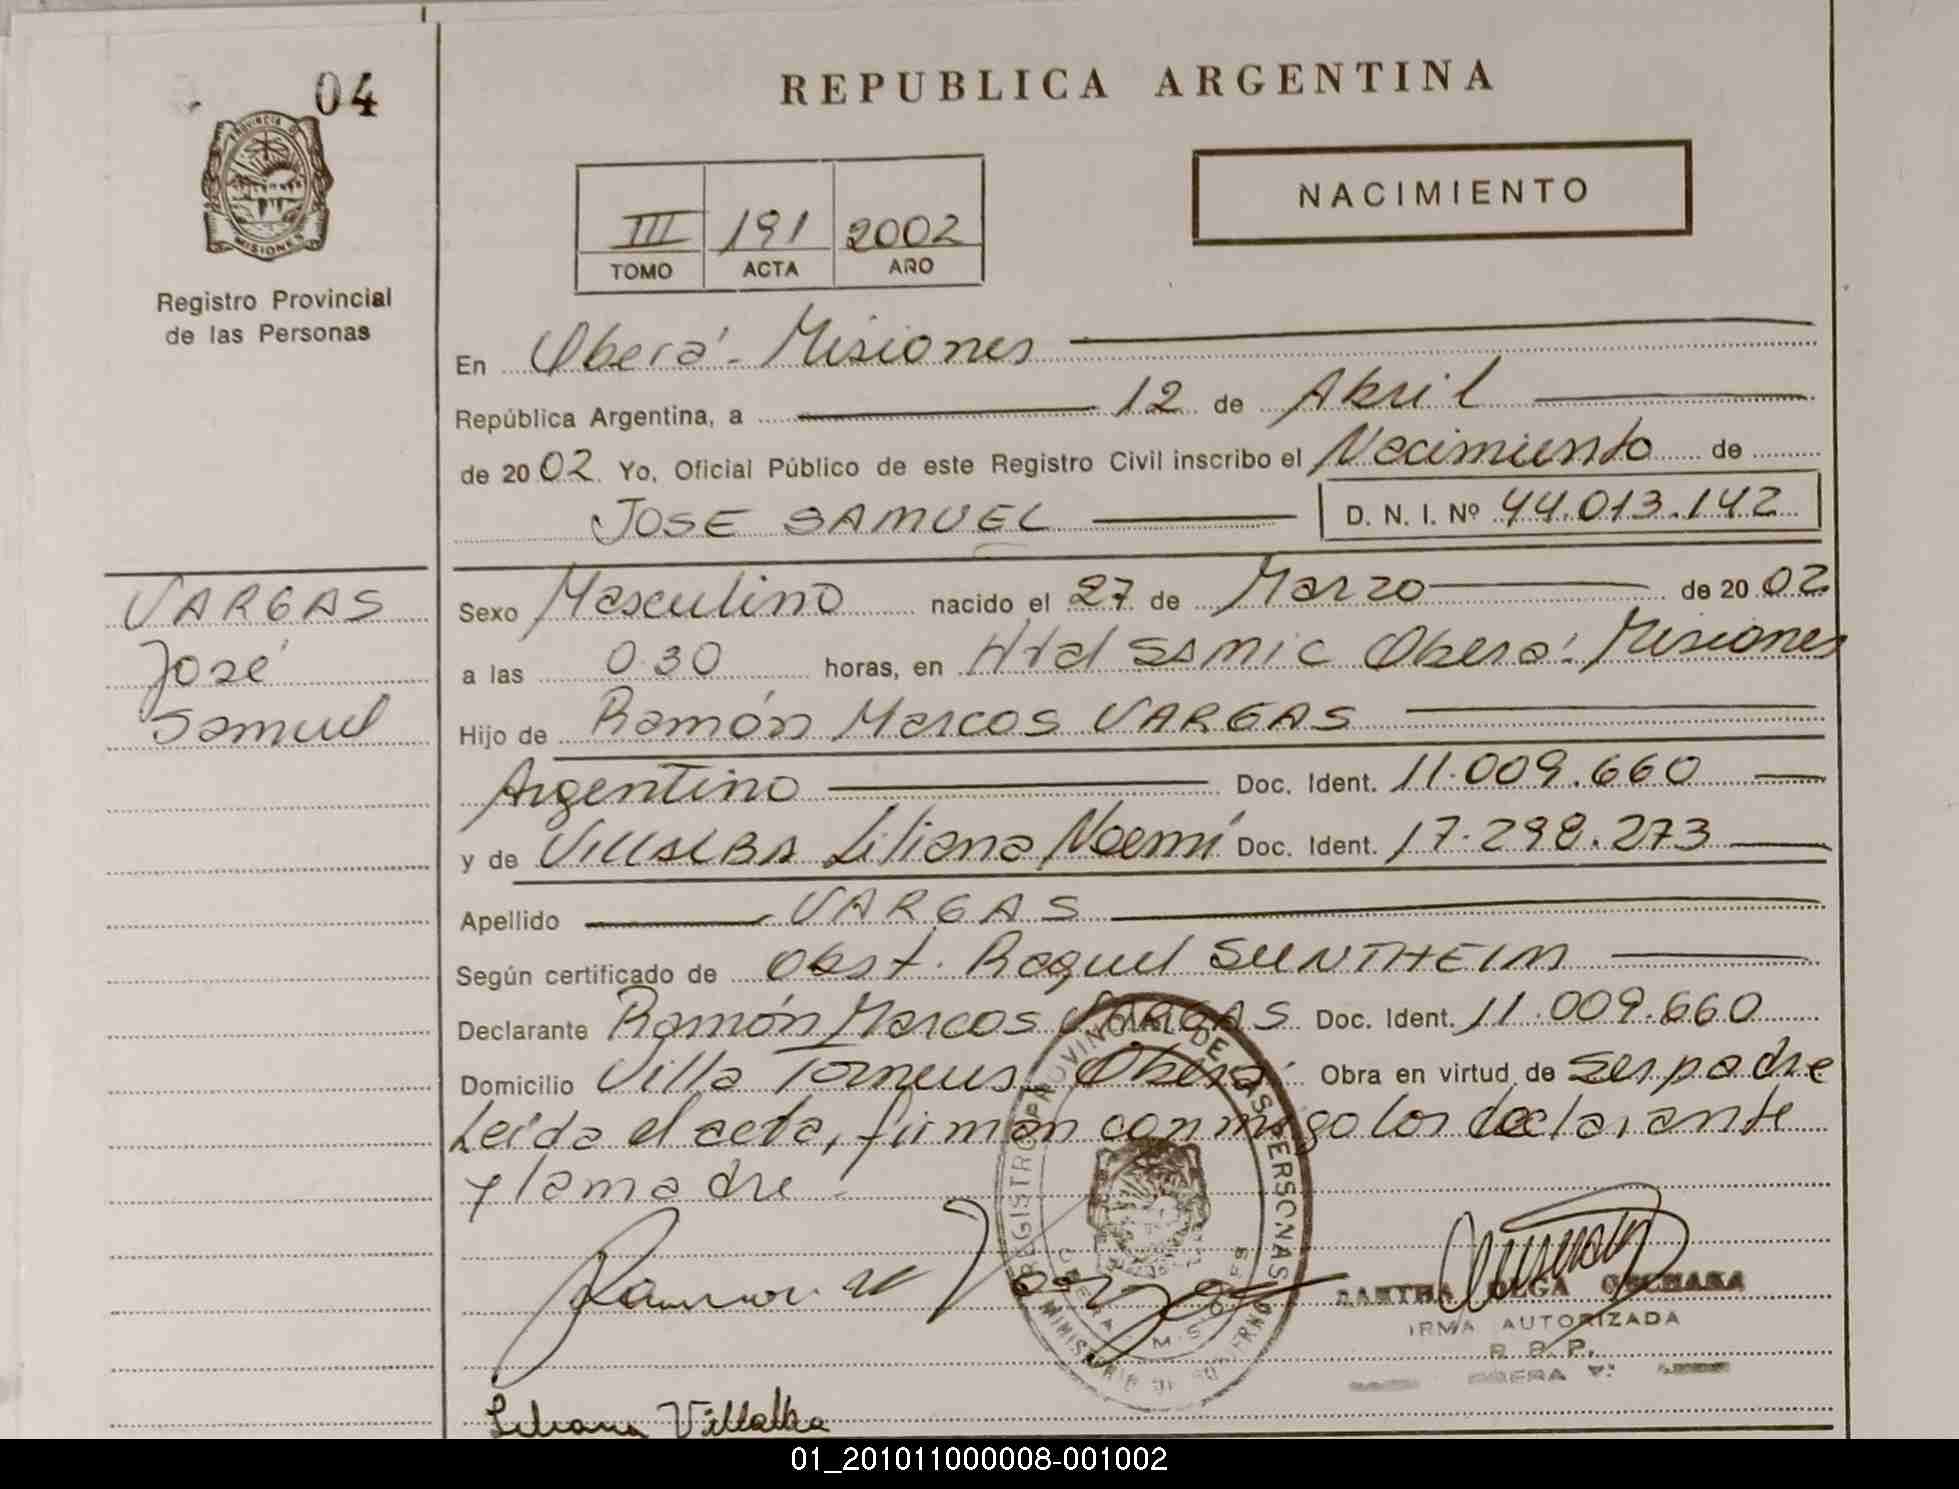 04
REPUBLICA ARGENTINA
PROVINCIA D
MISIONES
Registro Provincial
de las Personas
III 191 2002
TOMO ACTA AÑO
NACIMIENTO
En Oberá - Misiones
República Argentina, a 12 de Abril
de 2002. Yo, Oficial Público de este Registro Civil inscribo el Nacimiento de
JOSE SAMUEL D. N. I. Nº 44.013.142
VARGAS
José
Samuel
Sexo Masculino nacido el 27 de Marzo de 2002
a las 0.30 horas, en Htal SAMIC Oberá - Misiones
Hijo de Ramón Marcos VARGAS
Argentino Doc. Ident. 11.009.660
y de VILLALBA Liliana Noemí Doc. Ident. 17.298.273
Apellido VARGAS
Según certificado de Obst. Raquel SUNTHEIM
Declarante Ramón Marcos VARGAS Doc. Ident. 11.009.660
Domicilio Villa Oberá Obra en virtud de ser padre
Leída el acta, firman conmigo los declarante
y la madre.
REGISTRO PROVINCIAL DE LAS PERSONAS
OBERA MISIONES
MINISTERIO DE GOBIERNO
OLGA
IRMA AUTORIZADA
R. P. P.
OBERA
Liliana Villalba
01_201011000008-001002